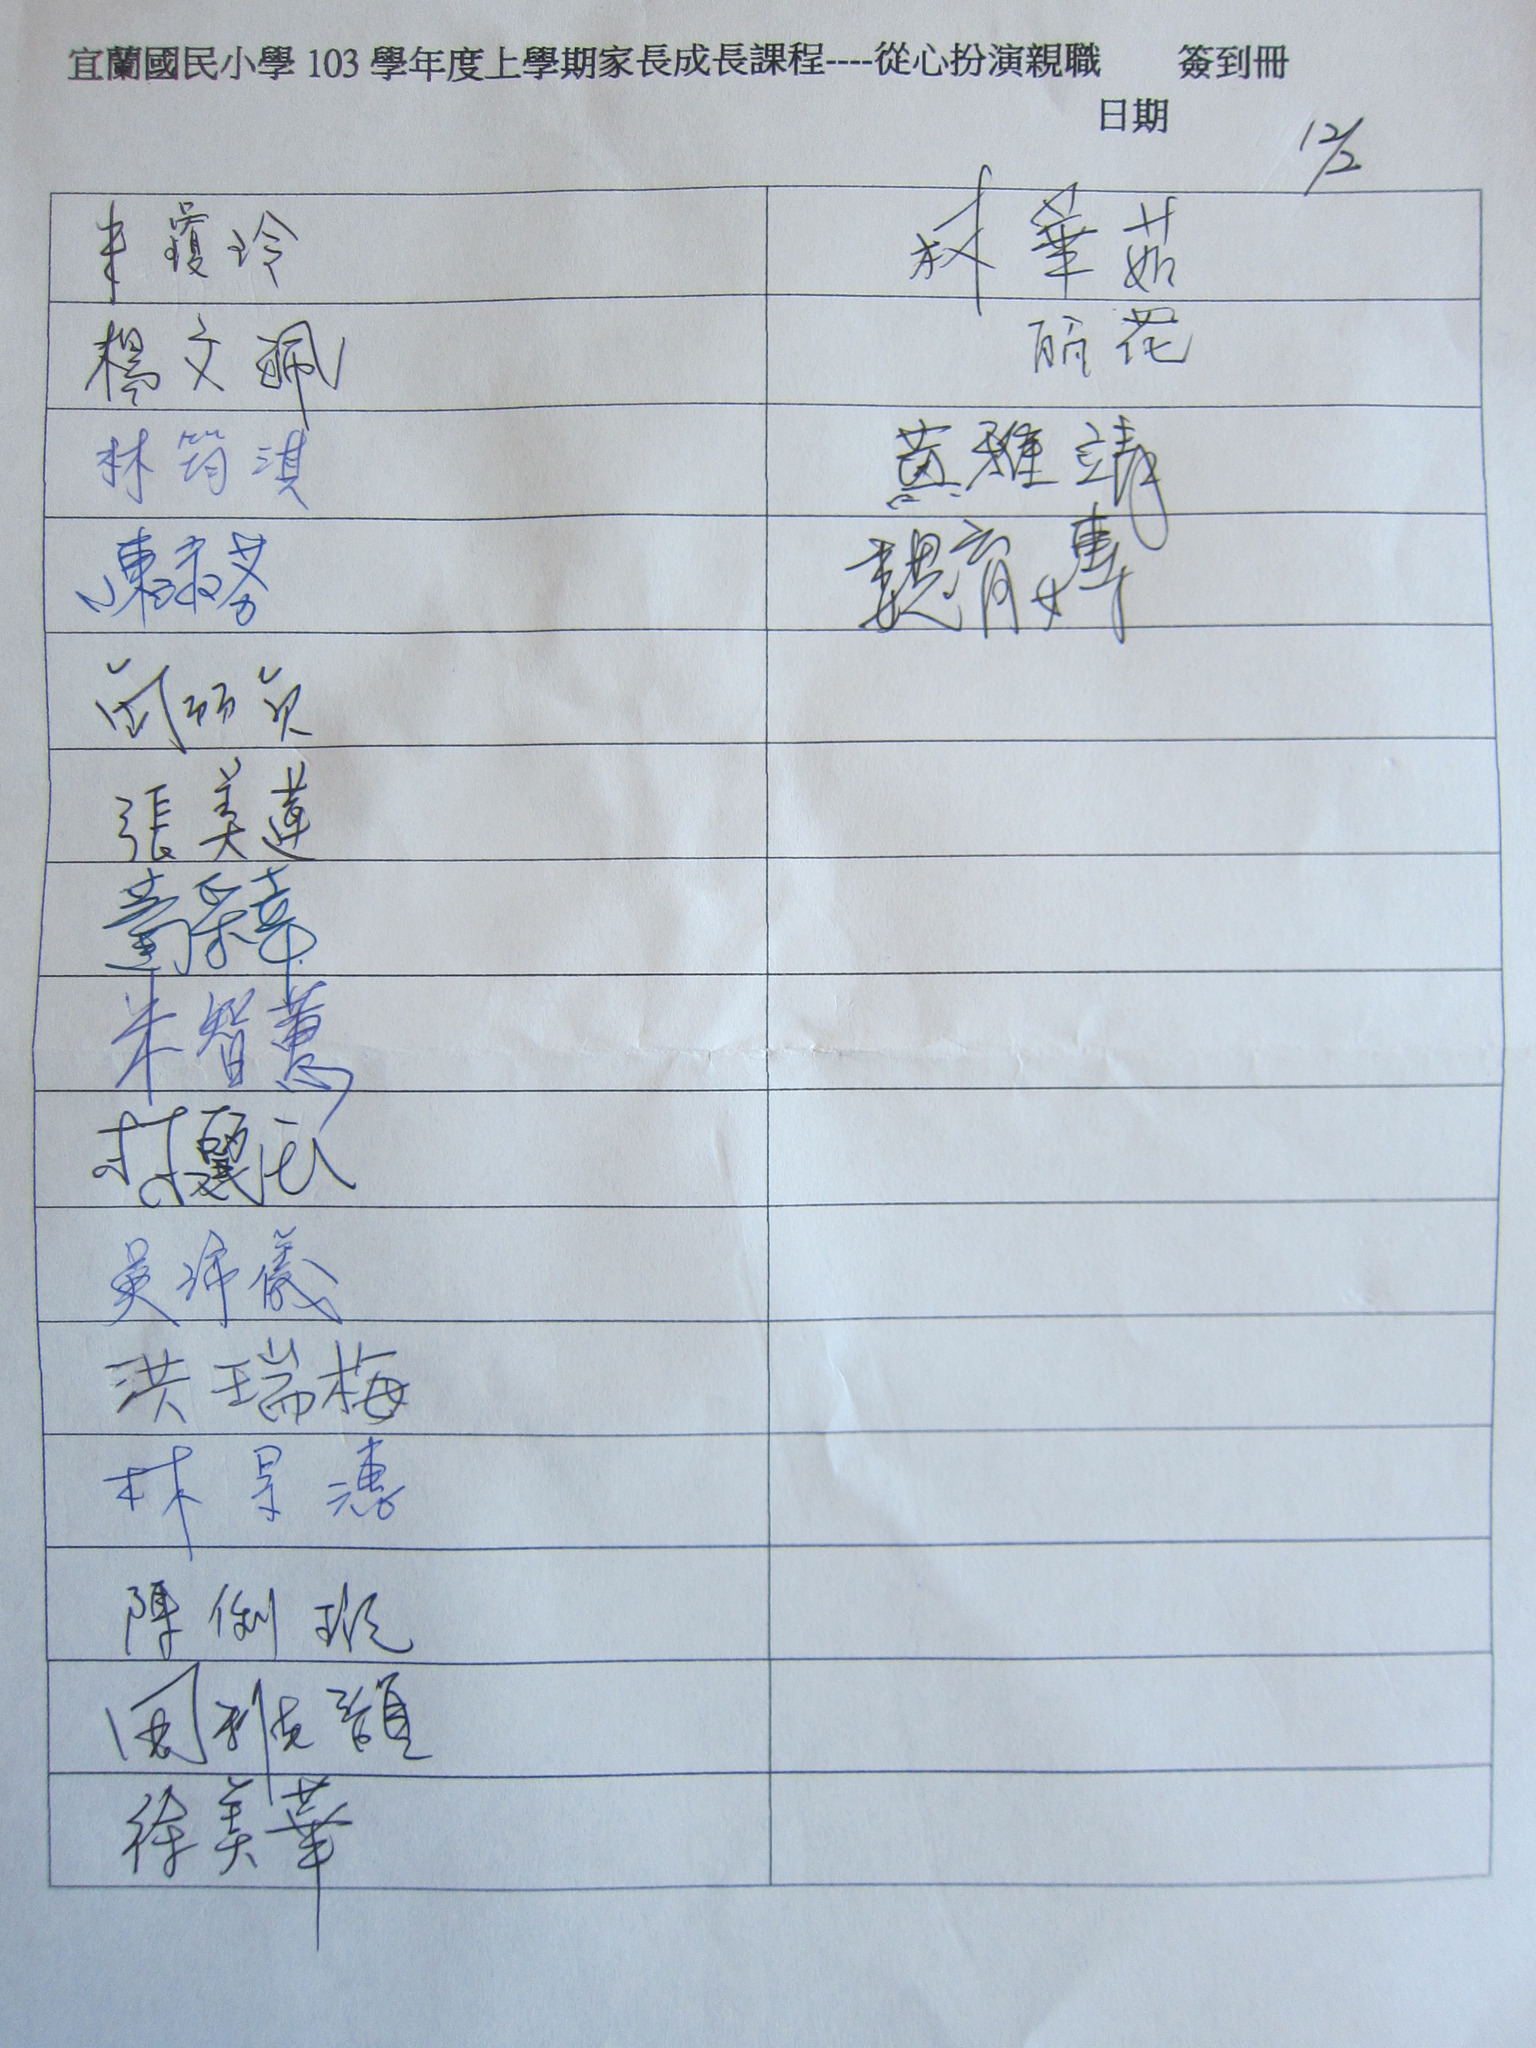 宜蘭國民小學 103 學年度上學期家長成長課程----從心扮演親職 簽到冊
日期 12/2
朱瓊玲
林華茹
楊文珮
丽花
林筠淇
黃雅靖
陳淑芬
魏育
張美蓮
朱智蕙
林麗
吳瑋儀
洪瑞梅
林
陳俐
周雅韻
徐美華